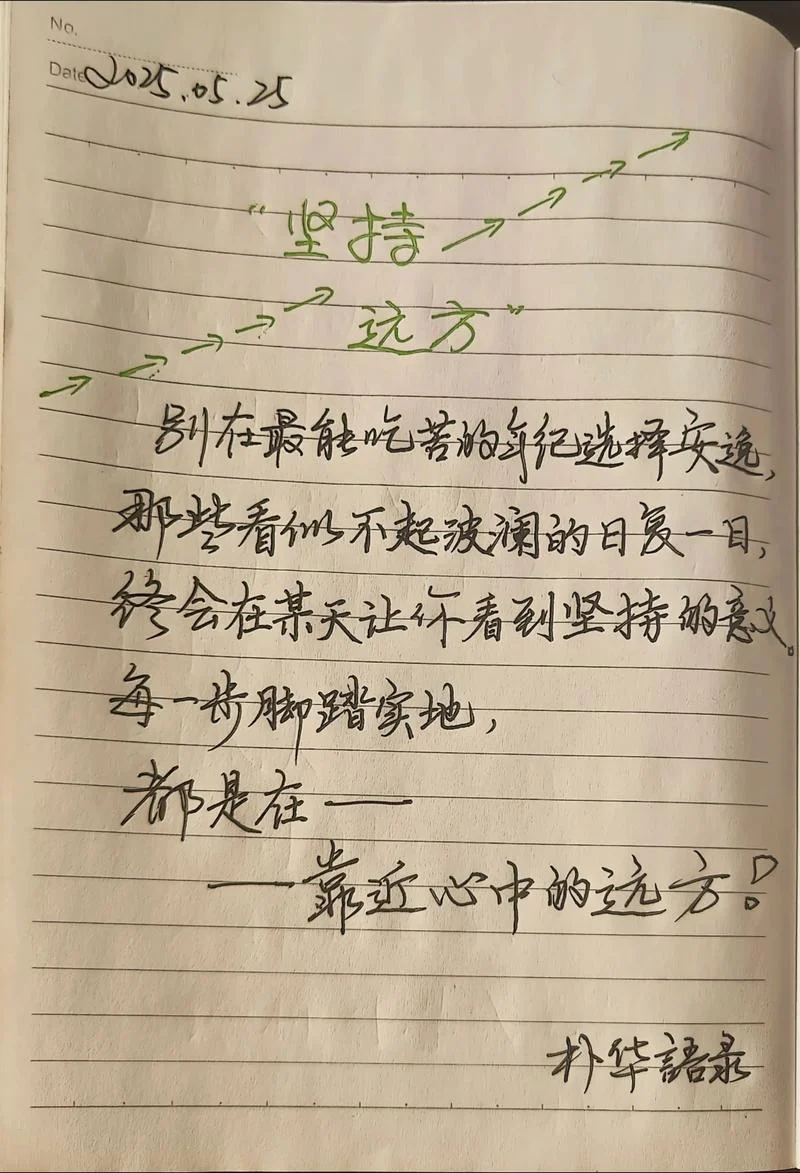 No.
Date 2025.05.25
“坚持→→→→→
→→→→→远方”
别在最能吃苦的年纪选择安逸,
那些看似不起波澜的日复一日,
终会在某天让你看到坚持的意义。
每一步脚踏实地,
都是在—
—靠近心中的远方!
朴华語录